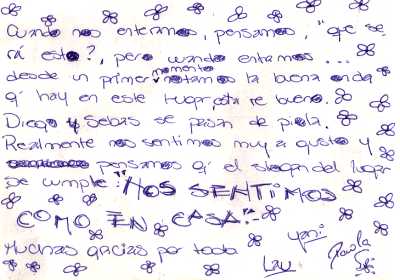 Cuando nos enteramos, pensamos, "que se-
rá esto?, pero cuando entramos...
desde un primer momento notamos la buena onda
q' hay en este lugar, esta re bueno.
Diego y Sebas se pasan de piola.
Realmente nos sentimos muy a gusto y
pensamos q' el slogan del lugar
se cumple: "NOS SENTIMOS
COMO EN CASA".-
Muchas gracias por todo
Yani
Lau
Paola